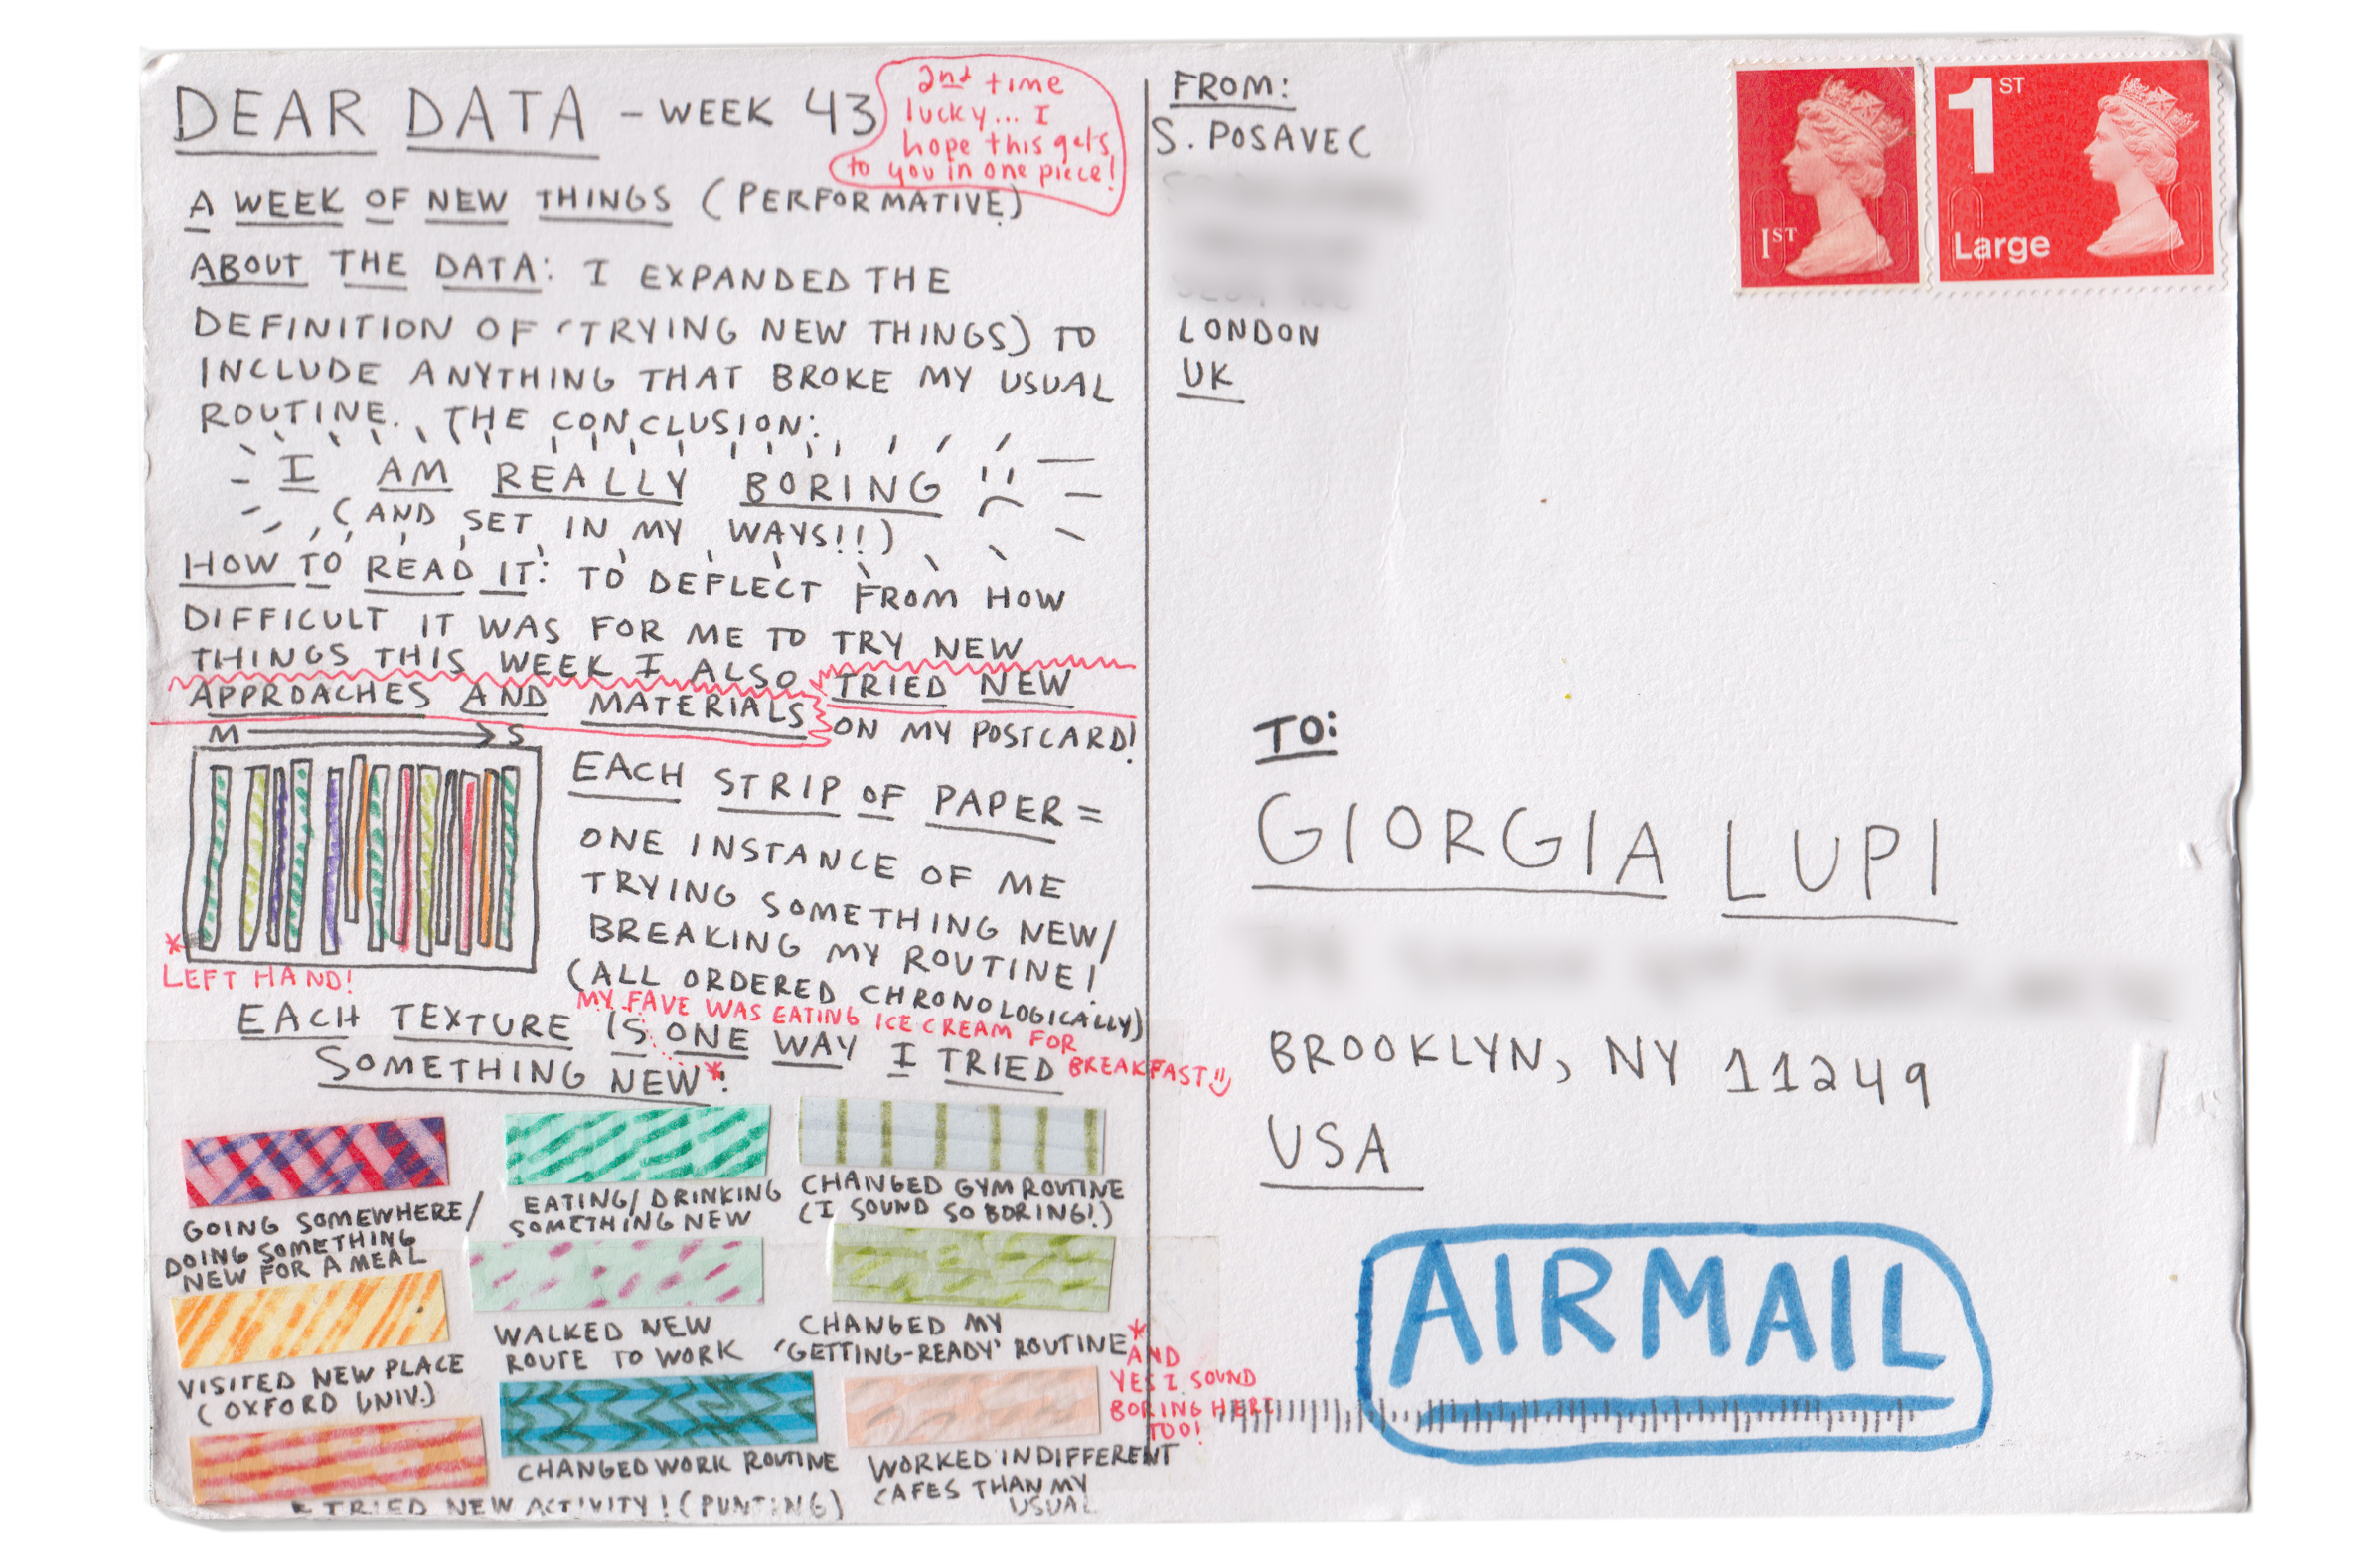 DEAR DATA - WEEK 43
2nd time
lucky... I
hope this gets
to you in one piece!
A WEEK OF NEW THINGS (PERFORMATIVE)
ABOUT THE DATA: I EXPANDED THE
DEFINITION OF 'TRYING NEW THINGS) TO
INCLUDE ANYTHING THAT BROKE MY USUAL
ROUTINE. THE CONCLUSION:
I AM REALLY BORING
(AND SET IN MY WAYS!!)
HOW TO READ IT: TO DEFLECT FROM HOW
DIFFICULT IT WAS FOR ME TO TRY NEW
THINGS THIS WEEK I ALSO TRIED NEW
APPROACHES AND MATERIALS ON MY POSTCARD!
M S
* LEFT HAND!
EACH STRIP OF PAPER =
ONE INSTANCE OF ME
TRYING SOMETHING NEW/
BREAKING MY ROUTINE!
(ALL ORDERED CHRONOLOGICALLY)
MY FAVE WAS EATING ICE CREAM FOR
BREAKFAST
EACH TEXTURE IS ONE WAY I TRIED
SOMETHING NEW*:
GOING SOMEWHERE/
DOING SOMETHING
NEW FOR A MEAL
EATING/DRINKING
SOMETHING NEW
CHANGED GYM ROUTINE
(I SOUND SO BORING!)
VISITED NEW PLACE
(OXFORD UNIV.)
WALKED NEW
ROUTE TO WORK
CHANGED MY
'GETTING-READY' ROUTINE
* AND
YES I SOUND
BORING HERE
TOO!
TRIED NEW ACTIVITY! (PUNTING)
CHANGED WORK ROUTINE
WORKED IN DIFFERENT
CAFES THAN MY
USUAL
FROM:
S. POSAVEC
LONDON
UK
1ST
1ST
Large
TO:
GIORGIA LUPI
BROOKLYN, NY 11249
USA
AIRMAIL